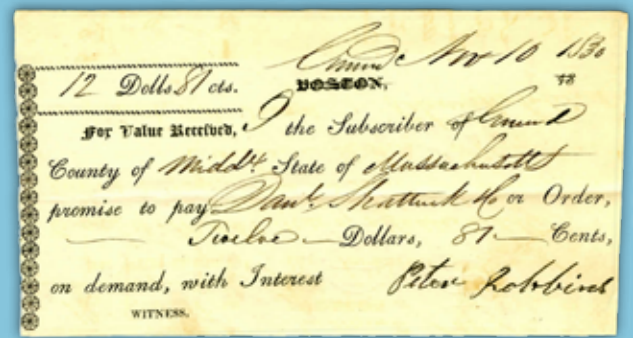 Nov 10 1830
12 Dolls. 81 cts. BOSTON, 18
For Value Received, I the Subscriber of
County of Middx. State of Massachusetts
promise to pay Danl. Shattuck & Co or Order,
Twelve Dollars, 81 Cents,
on demand, with Interest Peter Robbins
WITNESS.